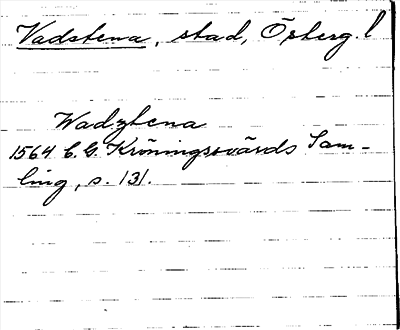 Vadstena, stad, Österg. l
Wadztena
1564 C. G. Kröningssvärds Sam-
ling, s. 131.